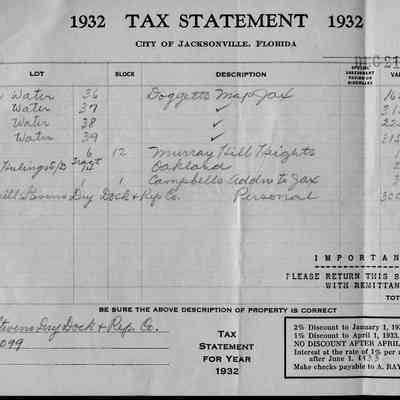 1932 TAX STATEMENT 1932
CITY OF JACKSONVILLE, FLORIDA
DEC 21
LOT BLOCK DESCRIPTION SPECIAL ASSESSMENT PAVING OR SIDEWALKS VA
Water 36 Doggetts Map Jax 16
Water 37 ✓
Water 38 ✓
Water 39 ✓
6 12 Murray Hill Heights
Oakland
1 1 Campbells Addn to Jax 3
Stevens Dry Dock & Rep. Co. Personal 300
IMPORTAN
PLEASE RETURN THIS S
WITH REMITTAN
TOT
BE SURE THE ABOVE DESCRIPTION OF PROPERTY IS CORRECT
Stevens Dry Dock & Rep. Co.
099
TAX
STATEMENT
FOR YEAR
1932
2% Discount to January 1, 19
1% Discount to April 1, 1933.
NO DISCOUNT AFTER APRIL
Interest at the rate of 1% per m
after June 1, 1933
Make checks payable to A. RAY